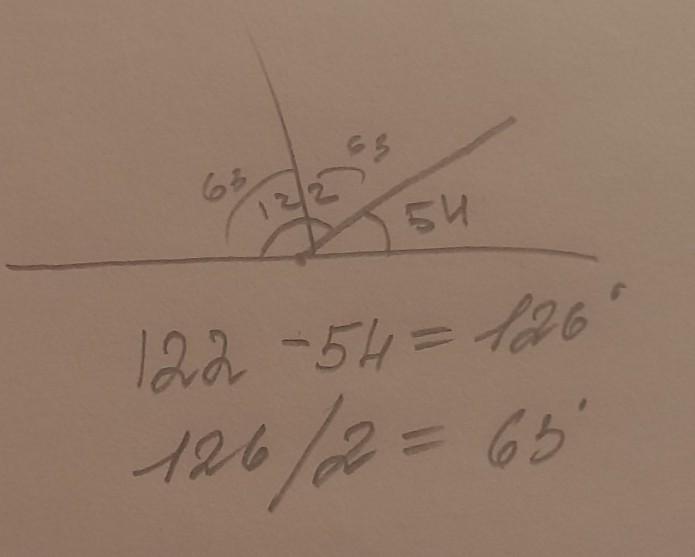 63
63
122
54
122 - 54 = 126°
126/2 = 63°